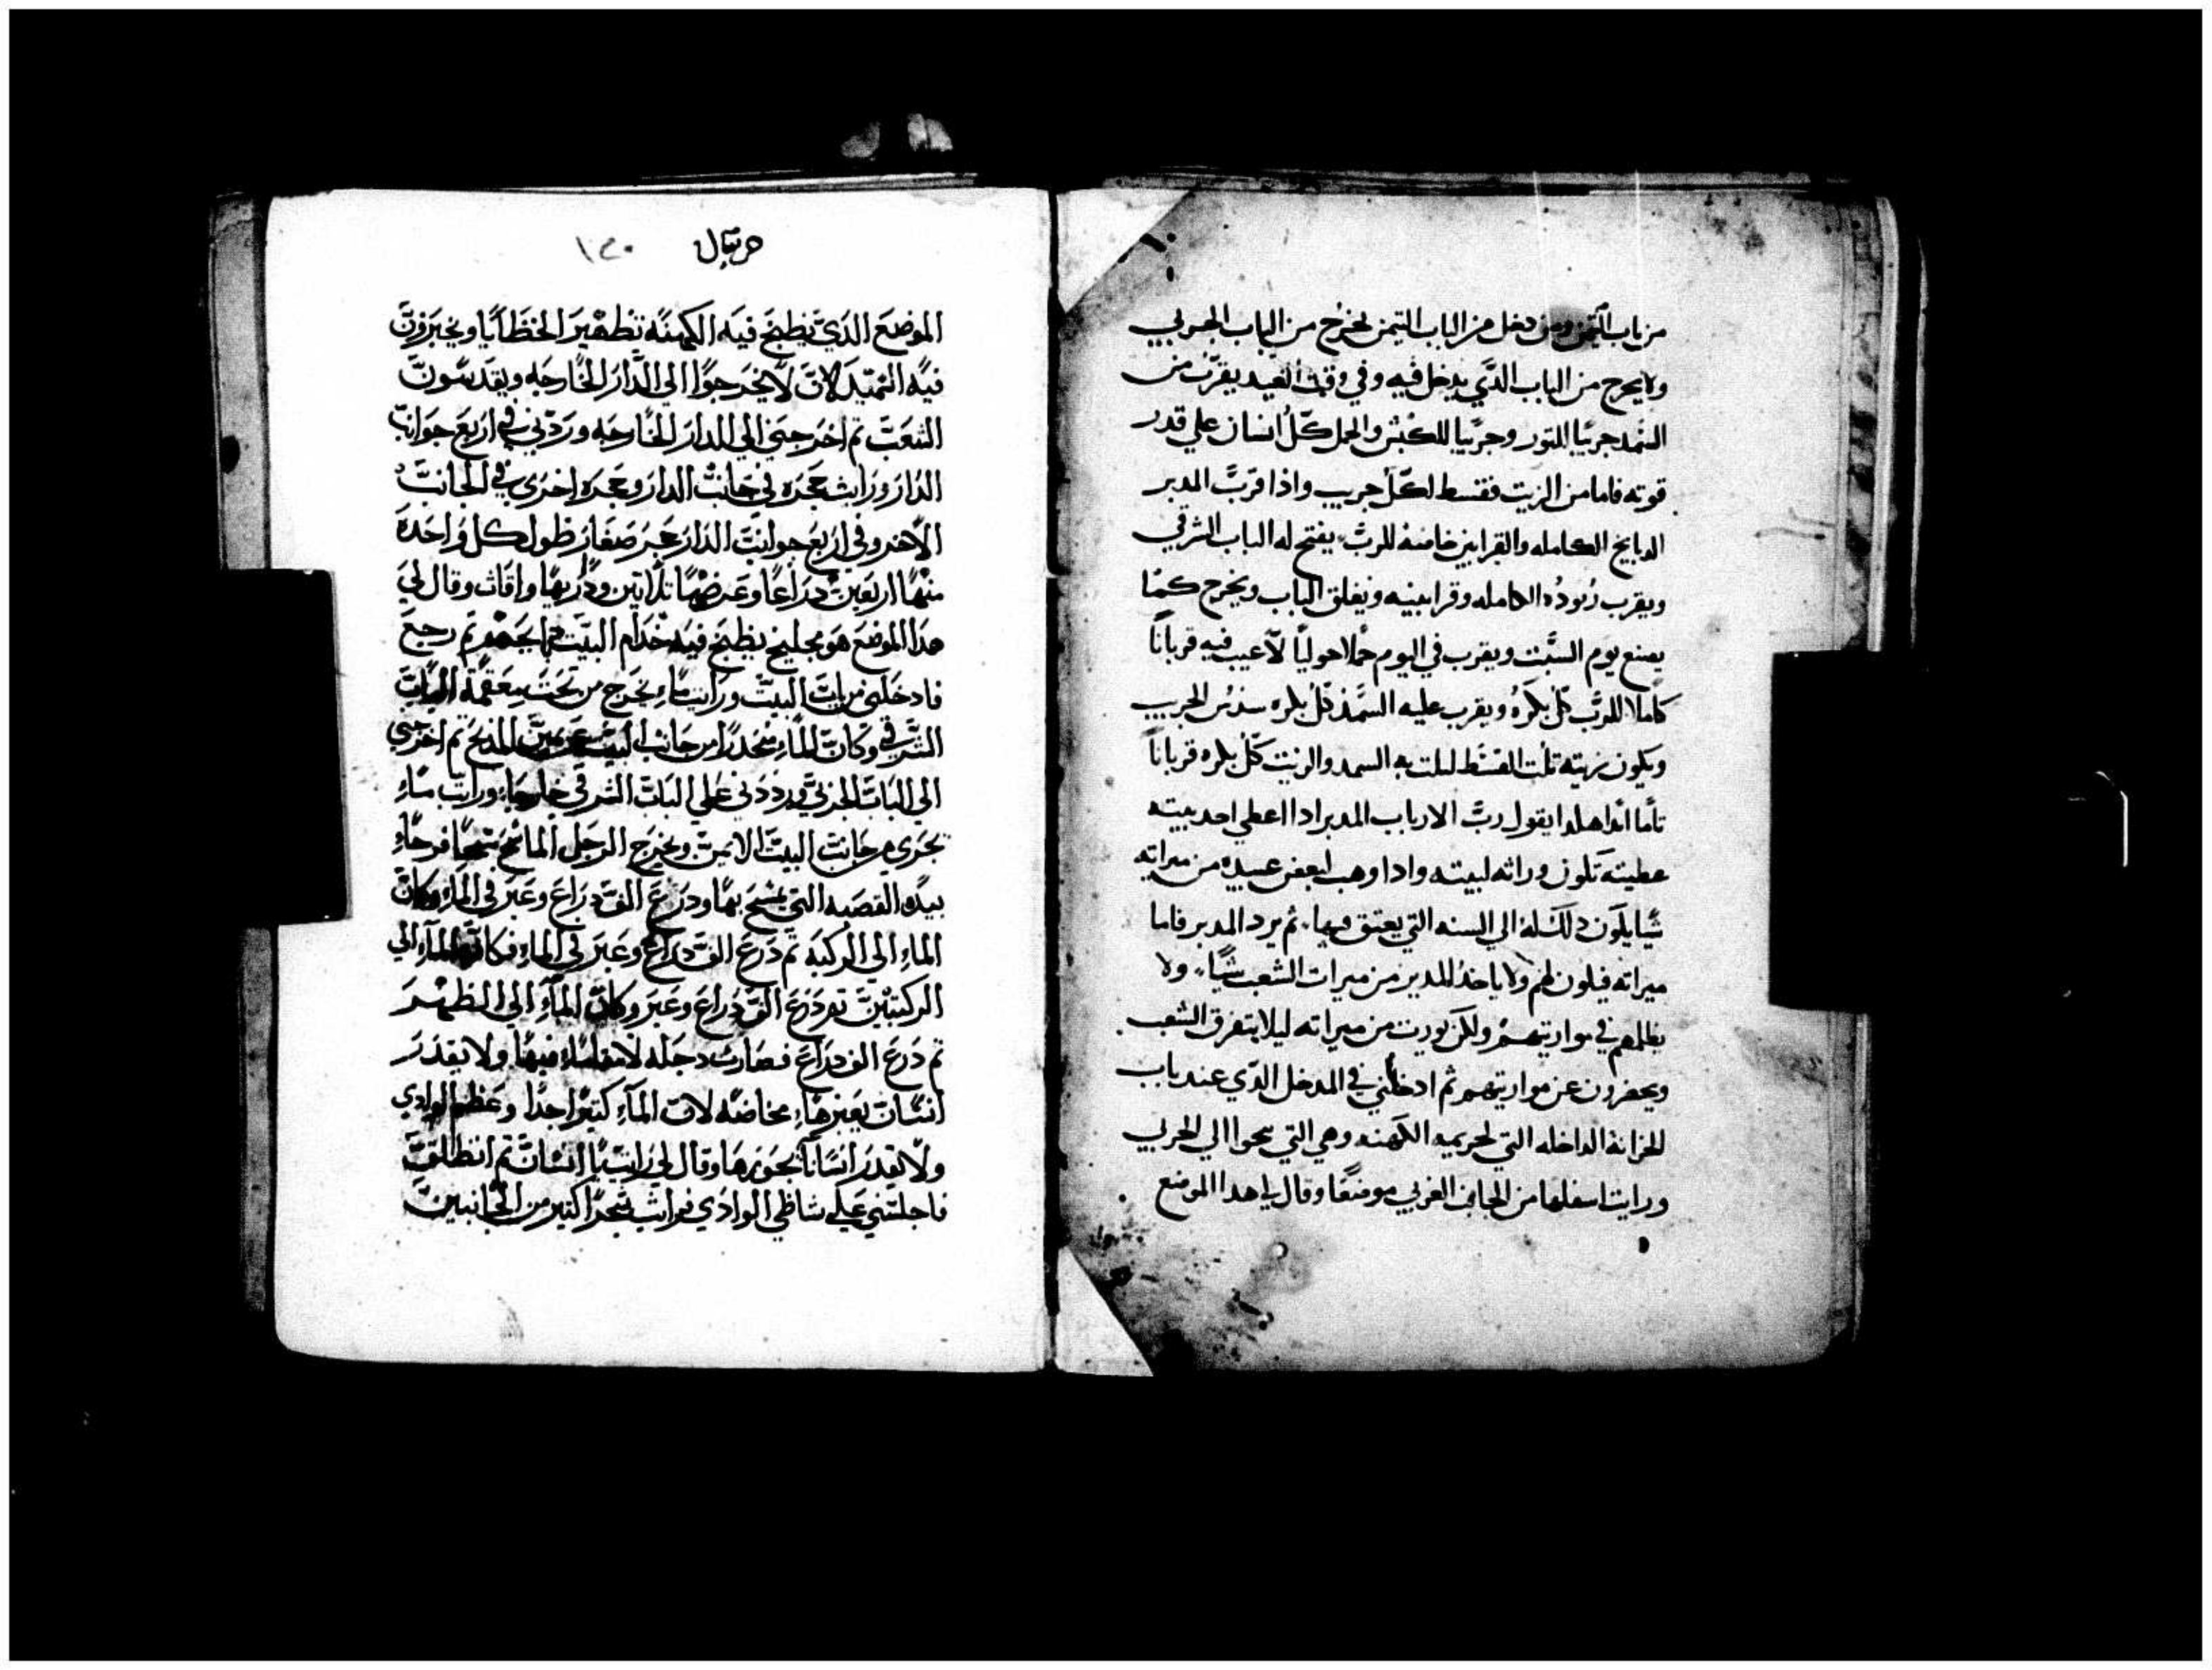 من باب التيمن ومن دخل من الباب التيمن يخرج من الباب الجربي
ولا يخرج من الباب الدي يدخل فيه وفي وقت العيد يقرب من
السمد جريبا للتور وجريبا للكبش والحمل كل انسان علي قدر
قوته فاما من الزيت فقسط لكل جريب وادا قرب المدبر
الدبايح الكامله والقرابين خاصه للرب يفتح له الباب الشرقي
ويقرب زبوده الكامله وقرابينه ويغلق الباب ويخرج كما
يصنع يوم السبت ويقرب في اليوم حملا حوليا لا عيب فيه قربانا
كاملا للرب كل بكره ويقرب عليه السمد كل بكره سدس الجريب
ويكون زيته تلت القسط ليلت به السمد والزيت كل بكره قربانا
تاما ابدا هكدا يقول رب الارباب المدبر ادا اعطي احد بيته
عطيته تكون وراثه لبيته وادا وهب لبعض عبيده من ميراته
شيا يكون دلك له الي السنه التي يعتق فيها ثم يرد المدبر فاما
ميراته فيكون لهم ولا ياخد المدبر من ميرات الشعب شيا ولا
يظلمهم في مواريتهم ولكن يورت من ميراته ليلا يتفرق الشعب
ويحفرون عن مواريتهم ثم ادخلني في المدخل الدي عند باب
الخزانه الداخله التي لحريمه الكهنه وهي التي نحوا الي الجربي
ورايت اسفلها من الجانب الغربي موضعا وقال لي هدا الموضع
حزقيال ١٢٠
الموضع الدي يطبخ فيه الكهنه تطهير الخطايا ويخبزون
فيه السميد لان لا يخرجوا الي الدار الخارجه ويقدسون
الشعب تم اخرجني الي الدار الخارجه وردني في اربع جوانب
الدار ورايت حجره في جانب الدار وحجره اخري في الجانب
الاخر وفي اربع جوانب الدار حجر صغار طول كل واحده
منها اربعين دراعا وعرضها تلاتين ودار بها واقات وقال لي
هدا الموضع هو مجليخ يطبخ فيه خدام البيت دبايحهم تم رجع
فادخلني من باب البيت ورايت ماء يخرج من تحت سقفة الباب
الشرقي وكان الماء منحدرا من جانب البيت عن يمين المدبح تم اخرجني
الي الباب الجربي ورددني علي الباب الشرقي خارجا ورايت ماء
تجري من جانب البيت الايمن ويخرج الرجل الماسح شحا فرحاء
بيده القصبه التي يمسح بها ودرع الف دراع وعبر في الماء وكان
الماء الي الركبه تم درع الف دراع وعبر في الماء فكان الماء الي
الركبتين تم درع الف دراع وعبر وكان الماء الي الظهر
تم درع الف دراع فصارت دجله لا فيها ولا يقدر
انسان يعبرها مخاضه لان الماء كتيرا جدا وعظم الوادي
ولا يقدر انسانا يجوزها وقال لي رايت يا انسان تم انطلق
فاجلسني علي شاطي الوادي فرايت شجرا كتير من الجانبين